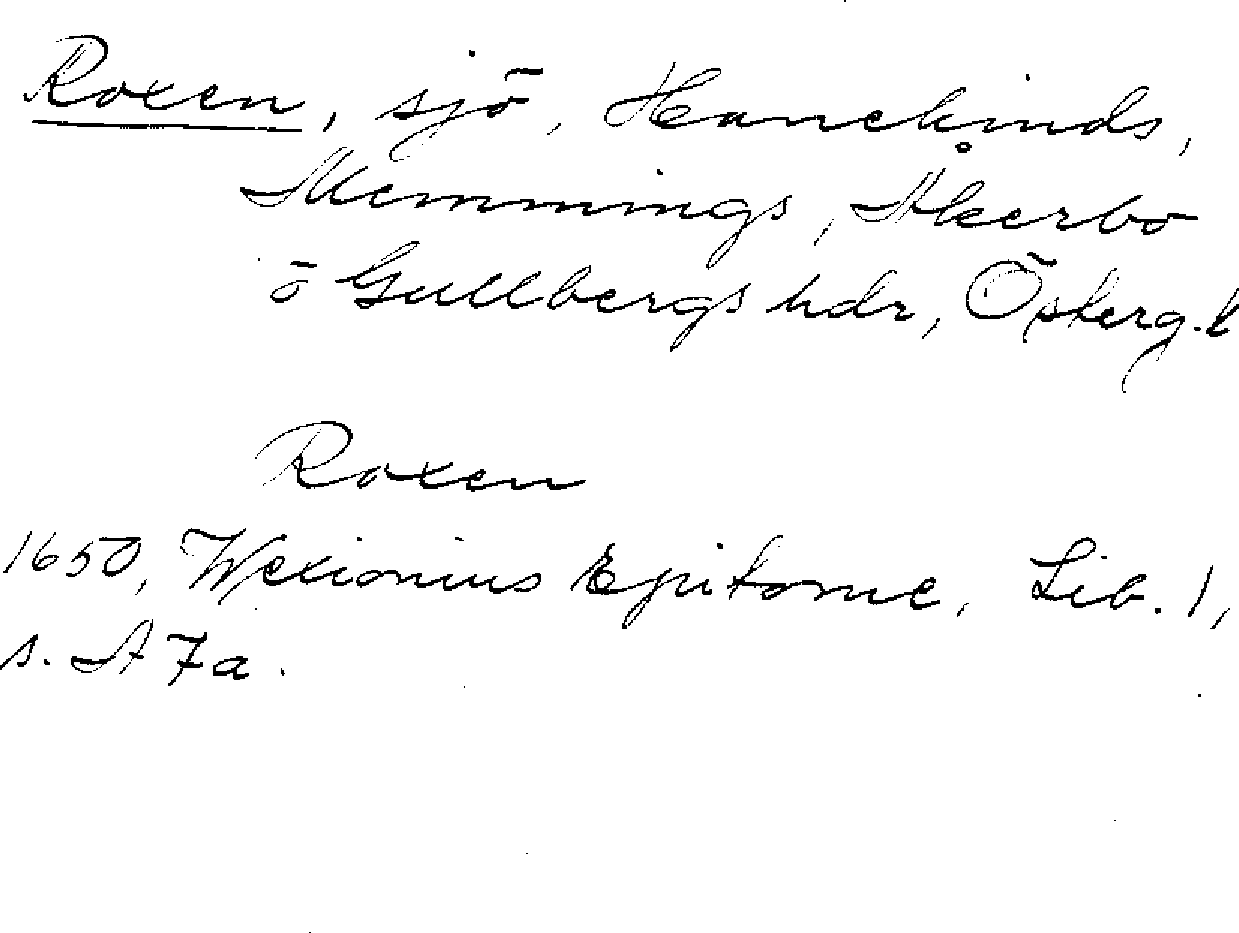 Roxen, sjö, Hanekinds,
Memmings, Åkerbo
o Gullbergs hdr, Österg. l
Roxen
1650, Wexionius Epitome, Lib. 1,
s. A 7a.